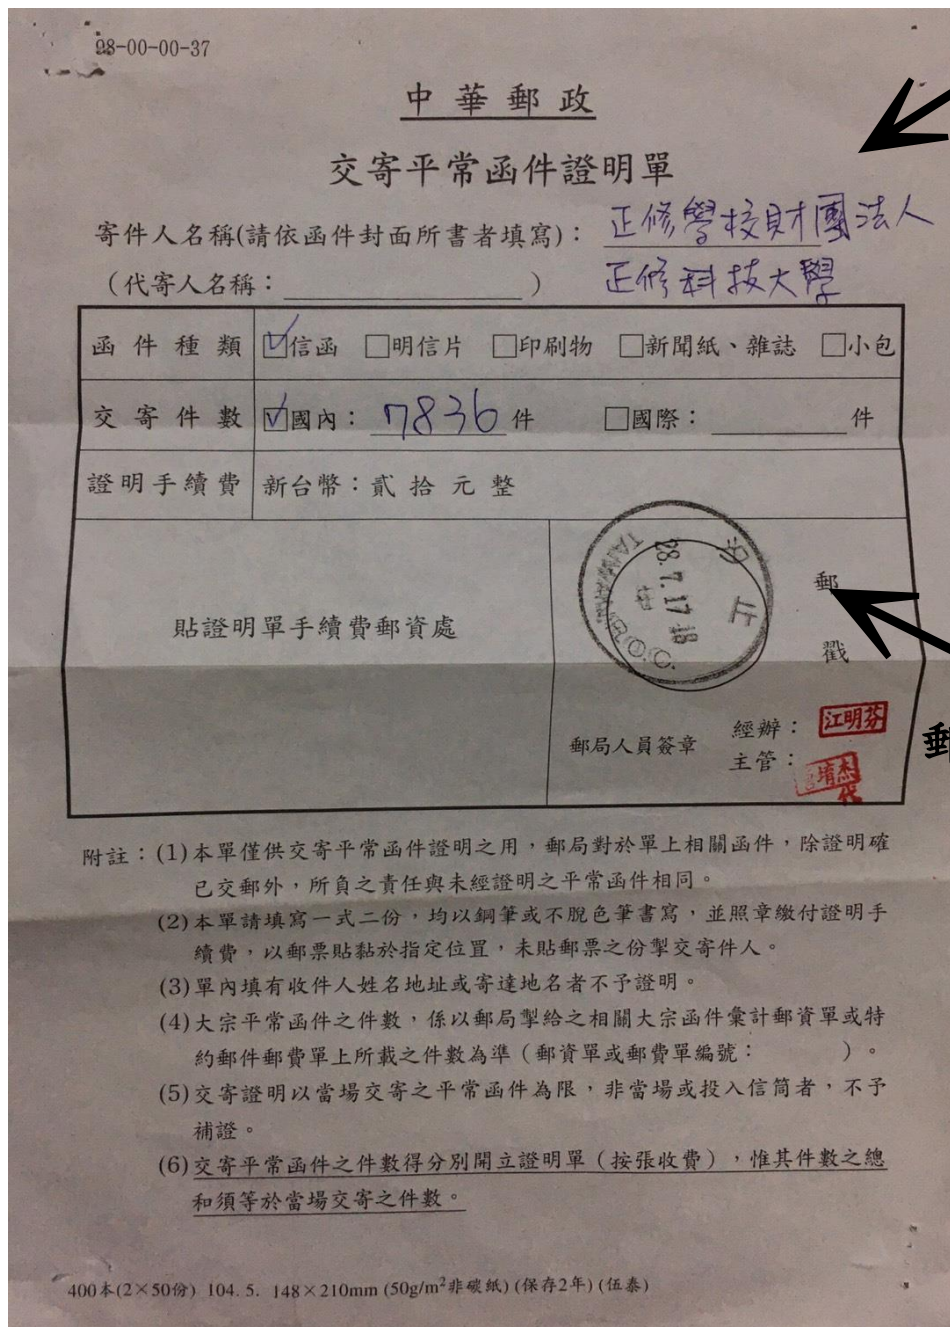 98-00-00-37
中華郵政
交寄平常函件證明單
寄件人名稱(請依函件封面所書者填寫)：正修學校財團法人
(代寄人名稱：　　　　) 正修科技大學
函件種類 ☑信函 □明信片 □印刷物 □新聞紙、雜誌 □小包
交寄件數 ☑國內：7836件 □國際：　　　件
證明手續費 新台幣：貳拾元整
貼證明單手續費郵資處
郵
戳
TAIWAN R.O.C.
郵局人員簽章
經辦：江明芬
主管：
附註：(1)本單僅供交寄平常函件證明之用，郵局對於單上相關函件，除證明確
已交郵外，所負之責任與未經證明之平常函件相同。
(2)本單請填寫一式二份，均以鋼筆或不脫色筆書寫，並照章繳付證明手
續費，以郵票貼黏於指定位置，未貼郵票之份掣交寄件人。
(3)單內填有收件人姓名地址或寄達地名者不予證明。
(4)大宗平常函件之件數，係以郵局掣給之相關大宗函件彙計郵資單或特
約郵件郵費單上所載之件數為準（郵資單或郵費單編號：　　　）。
(5)交寄證明以當場交寄之平常函件為限，非當場或投入信筒者，不予
補證。
(6)交寄平常函件之件數得分別開立證明單（按張收費），惟其件數之總
和須等於當場交寄之件數。
400本(2×50份) 104. 5. 148×210mm (50g/m²非碳紙) (保存2年) (伍泰)